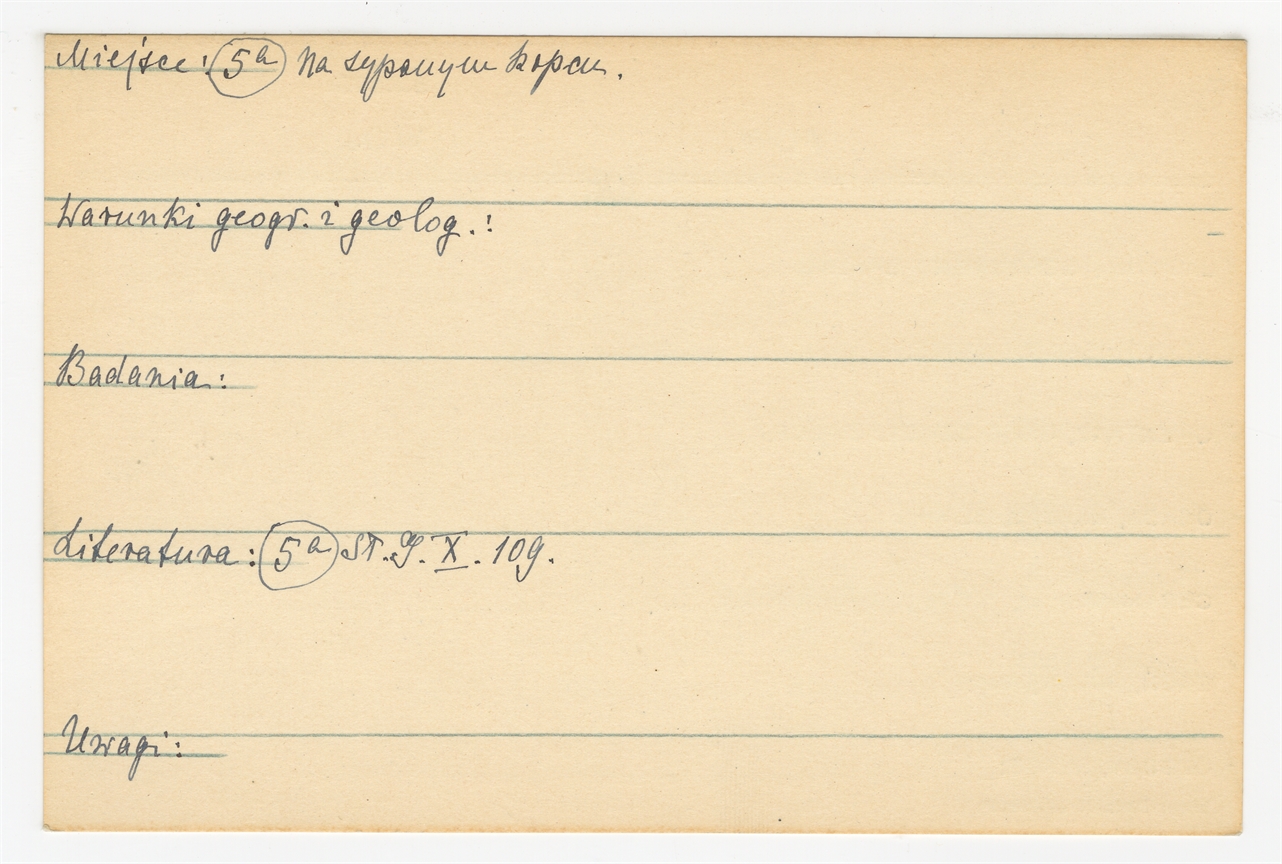 Miejsce: 5a Na sypanym kopcu.
Warunki geogr. i geolog.:
Badania:
Literatura: 5a ST. J. X. 109.
Uwagi: